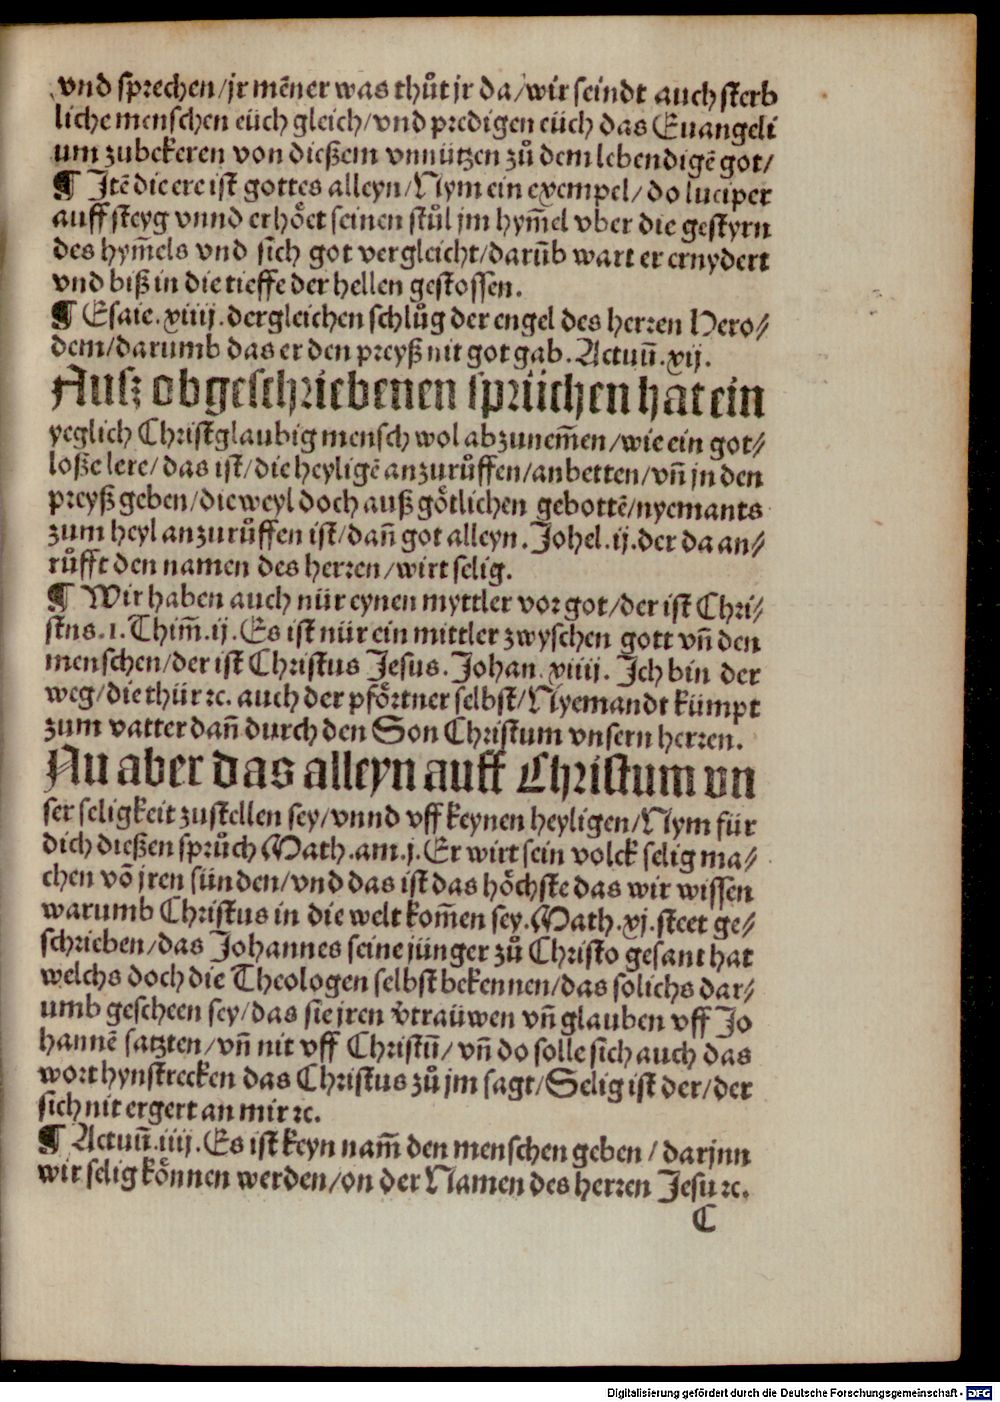 vnd sprechen/jr mēner was thůt jr da/wir seindt auch sterb
liche menschen eüch gleich/vnd predigen eüch das Euangeli
um zubekeren von dießem vnnützen zů dem lebendigē got/
¶ Itē die ere ist gottes alleyn/Nym ein exempel/do luciper
auff steyg vnnd erhöet seinen stůl jm hym̄el vber die gestyrn
des hym̄els vnd sich got vergleicht/darūb wart er ernydert
vnd biß in die tieffe der hellen gestossen.
¶ Esaie.xiiij.dergleichen schlůg der engel des herren Hero⸗
dem/darumb das er den preyß nit got gab.Actuū.xij.
Ausz obgeschriebenen sprüchen hat ein
yeglich Christglaubig mensch wol abzunem̄en/wie ein got⸗
loße lere/das ist/die heyligē anzurůffen/anbetten/vn̄ jn den
preyß geben/die weyl doch auß götlichen gebottē/nyemants
zum heyl anzurůffen ist/dan̄ got alleyn.Johel.ij.der da an⸗
růfft den namen des herren/wirt selig.
¶ Wir haben auch nür eynen myttler vor got/der ist Chri⸗
stns.1.Thim̄.ij.Es ist nür ein mittler zwyschen gott vn̄ den
menschen/der ist Christus Jesus.Johan.xiiij.Ich bin der
weg/die thür ꝛc. auch der pförtner selbst/Nyemandt kümpt
zum vatter dan̄ durch den Son Christum vnsern herren.
Nu aber das alleyn auff Christum vn
ser seligkeit zustellen sey/vnnd vff keynen heyligen/Nym für
dich dießen sprůch Math.am.j.Er wirt sein volck selig ma⸗
chen vō jren sünden/vnd das ist das höchste das wir wissen
warumb Christus in die welt kom̄en sey.Math.xj.steet ge⸗
schrieben/das Johannes seine jünger zů Christo gesant hat
welchs doch die Theologen selbst bekennen/das solichs dar⸗
umb gescheen sey/das sie jren v̈traüwen vn̄ glauben vff Jo
hannē satzten/vn̄ nit vff Christū/vn̄ do solle sich auch das
wort hynstrecken das Christus zů jm sagt/Selig ist der/der
sich nit ergert an mir ꝛc.
¶ Actuū.iiij.Es ist keyn nam̄ den menschen geben/darjnn
wir selig können werden/on der Namen des herren Jesu ꝛc.
C
Digitalisierung gefördert durch die Deutsche Forschungsgemeinschaft - DFG